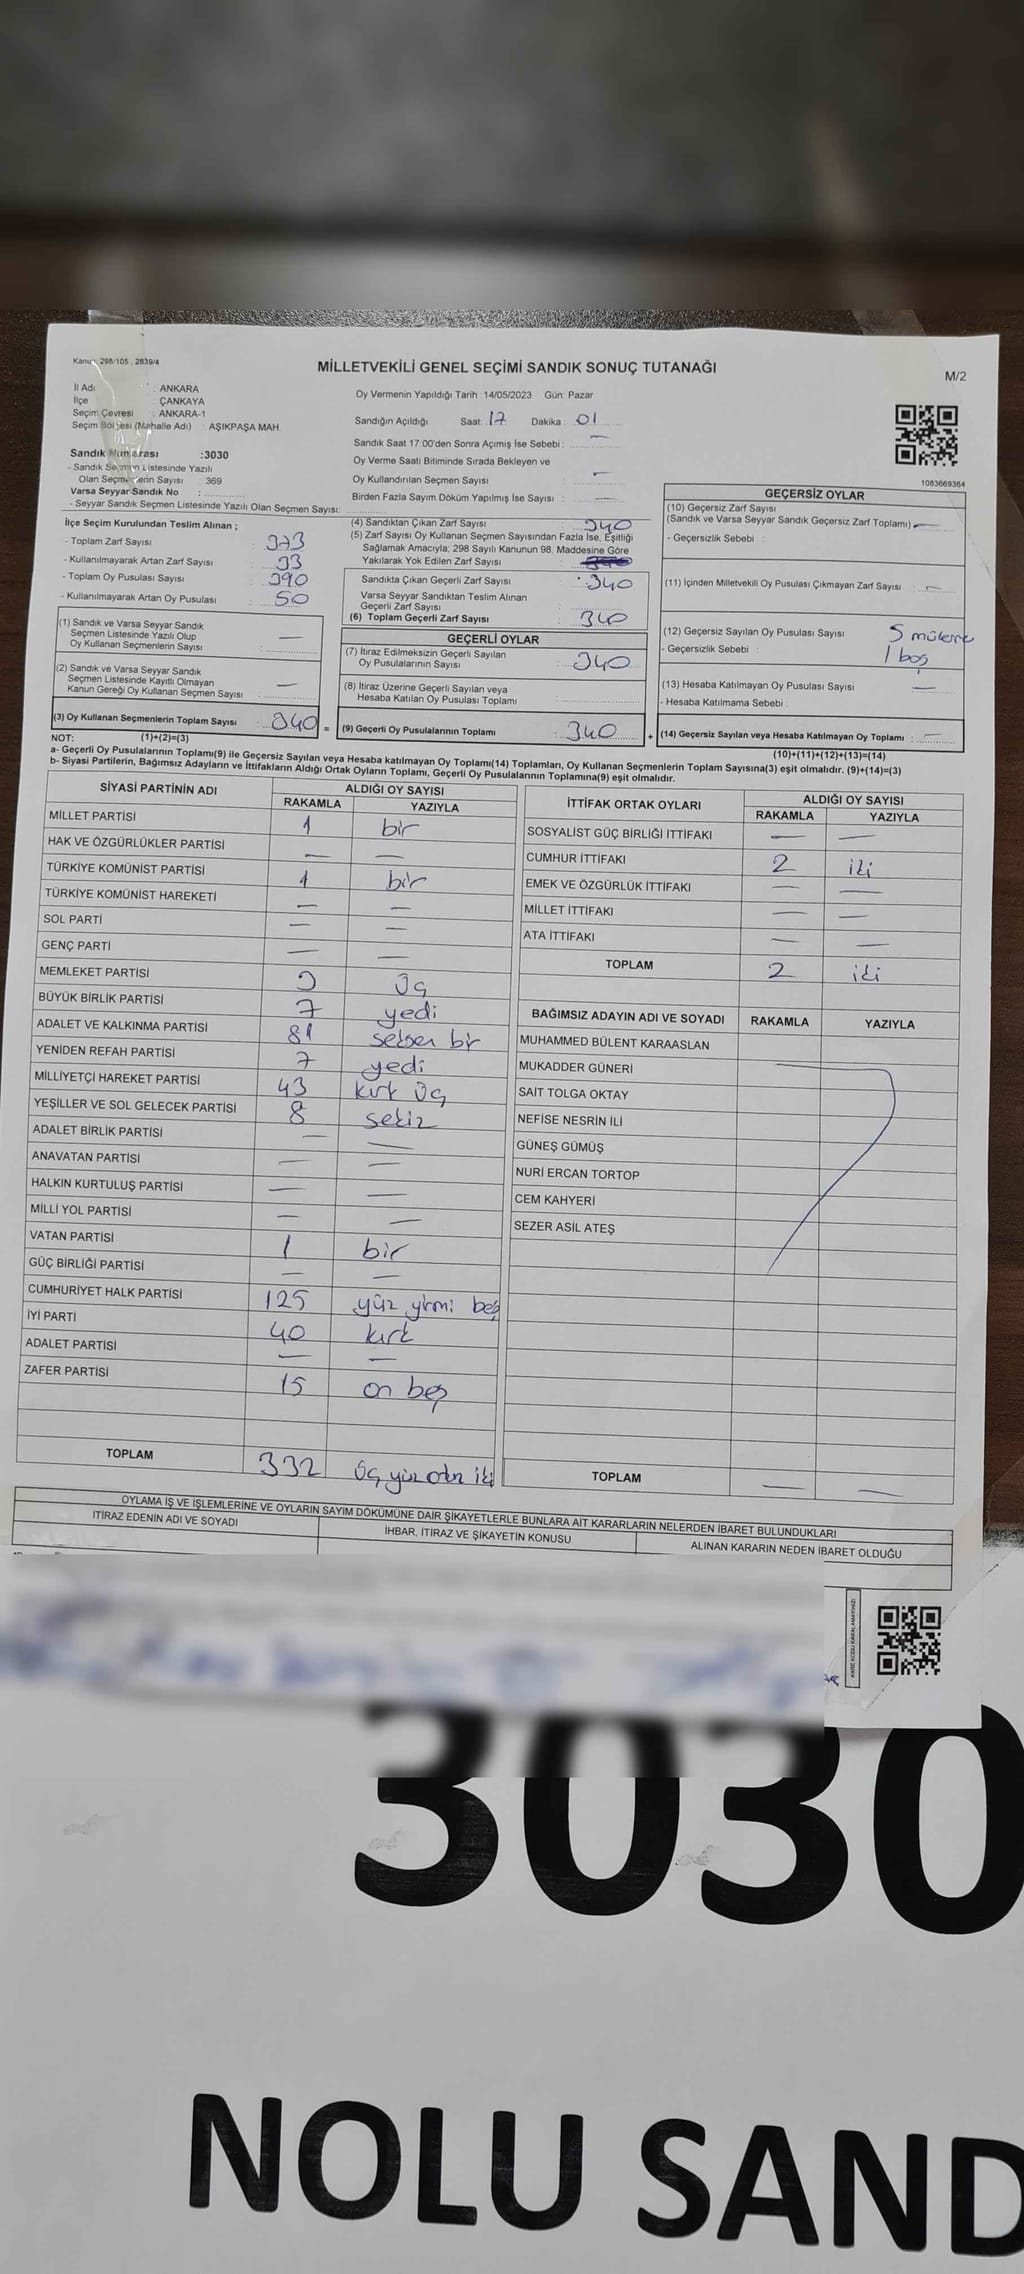 Kanun: 298/105 , 2839/4
MİLLETVEKİLİ GENEL SEÇİMİ SANDIK SONUÇ TUTANAĞI
M/2
İl Adı : ANKARA
İlçe : ÇANKAYA
Seçim Çevresi : ANKARA-1
Seçim Bölgesi (Mahalle Adı) : AŞIKPAŞA MAH.
Sandık Numarası :3030
- Sandık Seçmen Listesinde Yazılı
Olan Seçmenlerin Sayısı : 369
Varsa Seyyar Sandık No :
- Seyyar Sandık Seçmen Listesinde Yazılı Olan Seçmen Sayısı:
Oy Vermenin Yapıldığı Tarih :14/05/2023 Gün: Pazar
Sandığın Açıldığı Saat: 17 Dakika : 01
Sandık Saat 17:00'den Sonra Açımış İse Sebebi : —
Oy Verme Saati Bitiminde Sırada Bekleyen ve
Oy Kullandırılan Seçmen Sayısı : —
Birden Fazla Sayım Döküm Yapılmış İse Sayısı : —
1083669364
İlçe Seçim Kurulundan Teslim Alınan ;
- Toplam Zarf Sayısı : 373
- Kullanılmayarak Artan Zarf Sayısı : 33
- Toplam Oy Pusulası Sayısı : 390
- Kullanılmayarak Artan Oy Pusulası : 50
(1) Sandık ve Varsa Seyyar Sandık
Seçmen Listesinde Yazılı Olup
Oy Kullanan Seçmenlerin Sayısı : —
(2) Sandık ve Varsa Seyyar Sandık
Seçmen Listesinde Kayıtlı Olmayan
Kanun Gereği Oy Kullanan Seçmen Sayısı : —
(3) Oy Kullanan Seçmenlerin Toplam Sayısı : 340 =
(1)+(2)=(3)
(4) Sandıktan Çıkan Zarf Sayısı : 340
(5) Zarf Sayısı Oy Kullanan Seçmen Sayısından Fazla İse, Eşitliği
Sağlamak Amacıyla; 298 Sayılı Kanunun 98. Maddesine Göre
Yakılarak Yok Edilen Zarf Sayısı :
Sandıkta Çıkan Geçerli Zarf Sayısı : 340
Varsa Seyyar Sandıktan Teslim Alınan
Geçerli Zarf Sayısı :
(6) Toplam Geçerli Zarf Sayısı : 340
GEÇERLİ OYLAR
(7) İtiraz Edilmeksizin Geçerli Sayılan
Oy Pusulalarının Sayısı : 340
(8) İtiraz Üzerine Geçerli Sayılan veya
Hesaba Katılan Oy Pusulası Toplamı :
(9) Geçerli Oy Pusulalarının Toplamı : 340 +
GEÇERSİZ OYLAR
(10) Geçersiz Zarf Sayısı
(Sandık ve Varsa Seyyar Sandık Geçersiz Zarf Toplamı) : —
- Geçersizlik Sebebi :
(11) İçinden Milletvekili Oy Pusulası Çıkmayan Zarf Sayısı : —
(12) Geçersiz Sayılan Oy Pusulası Sayısı : 5
- Geçersizlik Sebebi : 1 boş
(13) Hesaba Katılmayan Oy Pusulası Sayısı : —
- Hesaba Katılmama Sebebi :
(14) Geçersiz Sayılan veya Hesaba Katılmayan Oy Toplamı : —
(10)+(11)+(12)+(13)=(14)
NOT:
a- Geçerli Oy Pusulalarının Toplamı(9) ile Geçersiz Sayılan veya Hesaba katılmayan Oy Toplamı(14) Toplamları, Oy Kullanan Seçmenlerin Toplam Sayısına(3) eşit olmalıdır. (9)+(14)=(3)
b- Siyasi Partilerin, Bağımsız Adayların ve İttifakların Aldığı Ortak Oyların Toplamı, Geçerli Oy Pusulalarının Toplamına(9) eşit olmalıdır.
SİYASİ PARTİNİN ADI ALDIĞI OY SAYISI
RAKAMLA YAZIYLA
MİLLET PARTİSİ 1 bir
HAK VE ÖZGÜRLÜKLER PARTİSİ — —
TÜRKİYE KOMÜNİST PARTİSİ 1 bir
TÜRKİYE KOMÜNİST HAREKETİ — —
SOL PARTİ — —
GENÇ PARTİ — —
MEMLEKET PARTİSİ 3 üç
BÜYÜK BİRLİK PARTİSİ 7 yedi
ADALET VE KALKINMA PARTİSİ 81 seksen bir
YENİDEN REFAH PARTİSİ 7 yedi
MİLLİYETÇİ HAREKET PARTİSİ 43 kırk üç
YEŞİLLER VE SOL GELECEK PARTİSİ 8 sekiz
ADALET BİRLİK PARTİSİ — —
ANAVATAN PARTİSİ — —
HALKIN KURTULUŞ PARTİSİ — —
MİLLİ YOL PARTİSİ — —
VATAN PARTİSİ 1 bir
GÜÇ BİRLİĞİ PARTİSİ — —
CUMHURİYET HALK PARTİSİ 125 yüz yirmi beş
İYİ PARTİ 40 kırk
ADALET PARTİSİ — —
ZAFER PARTİSİ 15 on beş
TOPLAM 332 üç yüz otuz iki
İTTİFAK ORTAK OYLARI ALDIĞI OY SAYISI
RAKAMLA YAZIYLA
SOSYALİST GÜÇ BİRLİĞİ İTTİFAKI — —
CUMHUR İTTİFAKI 2 iki
EMEK VE ÖZGÜRLÜK İTTİFAKI — —
MİLLET İTTİFAKI — —
ATA İTTİFAKI — —
TOPLAM 2 iki
BAĞIMSIZ ADAYIN ADI VE SOYADI RAKAMLA YAZIYLA
MUHAMMED BÜLENT KARAASLAN
MUKADDER GÜNERİ
SAİT TOLGA OKTAY
NEFİSE NESRİN İLİ
GÜNEŞ GÜMÜŞ
NURİ ERCAN TORTOP
CEM KAHYERİ
SEZER ASİL ATEŞ
TOPLAM — —
OYLAMA İŞ VE İŞLEMLERİNE VE OYLARIN SAYIM DÖKÜMÜNE DAİR ŞİKAYETLERLE BUNLARA AİT KARARLARIN NELERDEN İBARET BULUNDUKLARI
İTİRAZ EDENİN ADI VE SOYADI İHBAR, İTİRAZ VE ŞİKAYETİN KONUSU ALINAN KARARIN NEDEN İBARET OLDUĞU
KARE KODU KARALAMAYINIZ!
3030
NOLU SAND